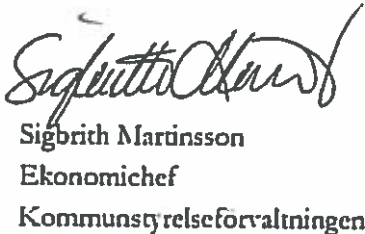 Sigbrith Martinsson
Ekonomichef
Kommunstyrelseförvaltningen